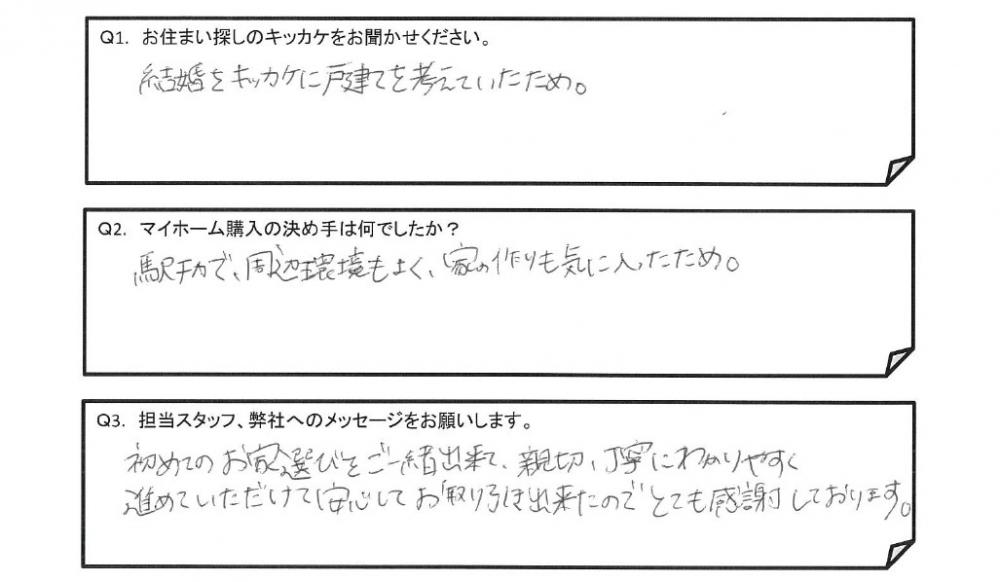 Q1. お住まい探しのキッカケをお聞かせください。
結婚をキッカケに戸建てを考えていたため。
Q2. マイホーム購入の決め手は何でしたか？
駅チカで、周辺環境もよく、家の作りも気に入ったため。
Q3. 担当スタッフ、弊社へのメッセージをお願いします。
初めてのお家選びをご一緒出来て、親切、丁寧にわかりやすく
進めていただけて安心してお取り引き出来たのでとても感謝しております。